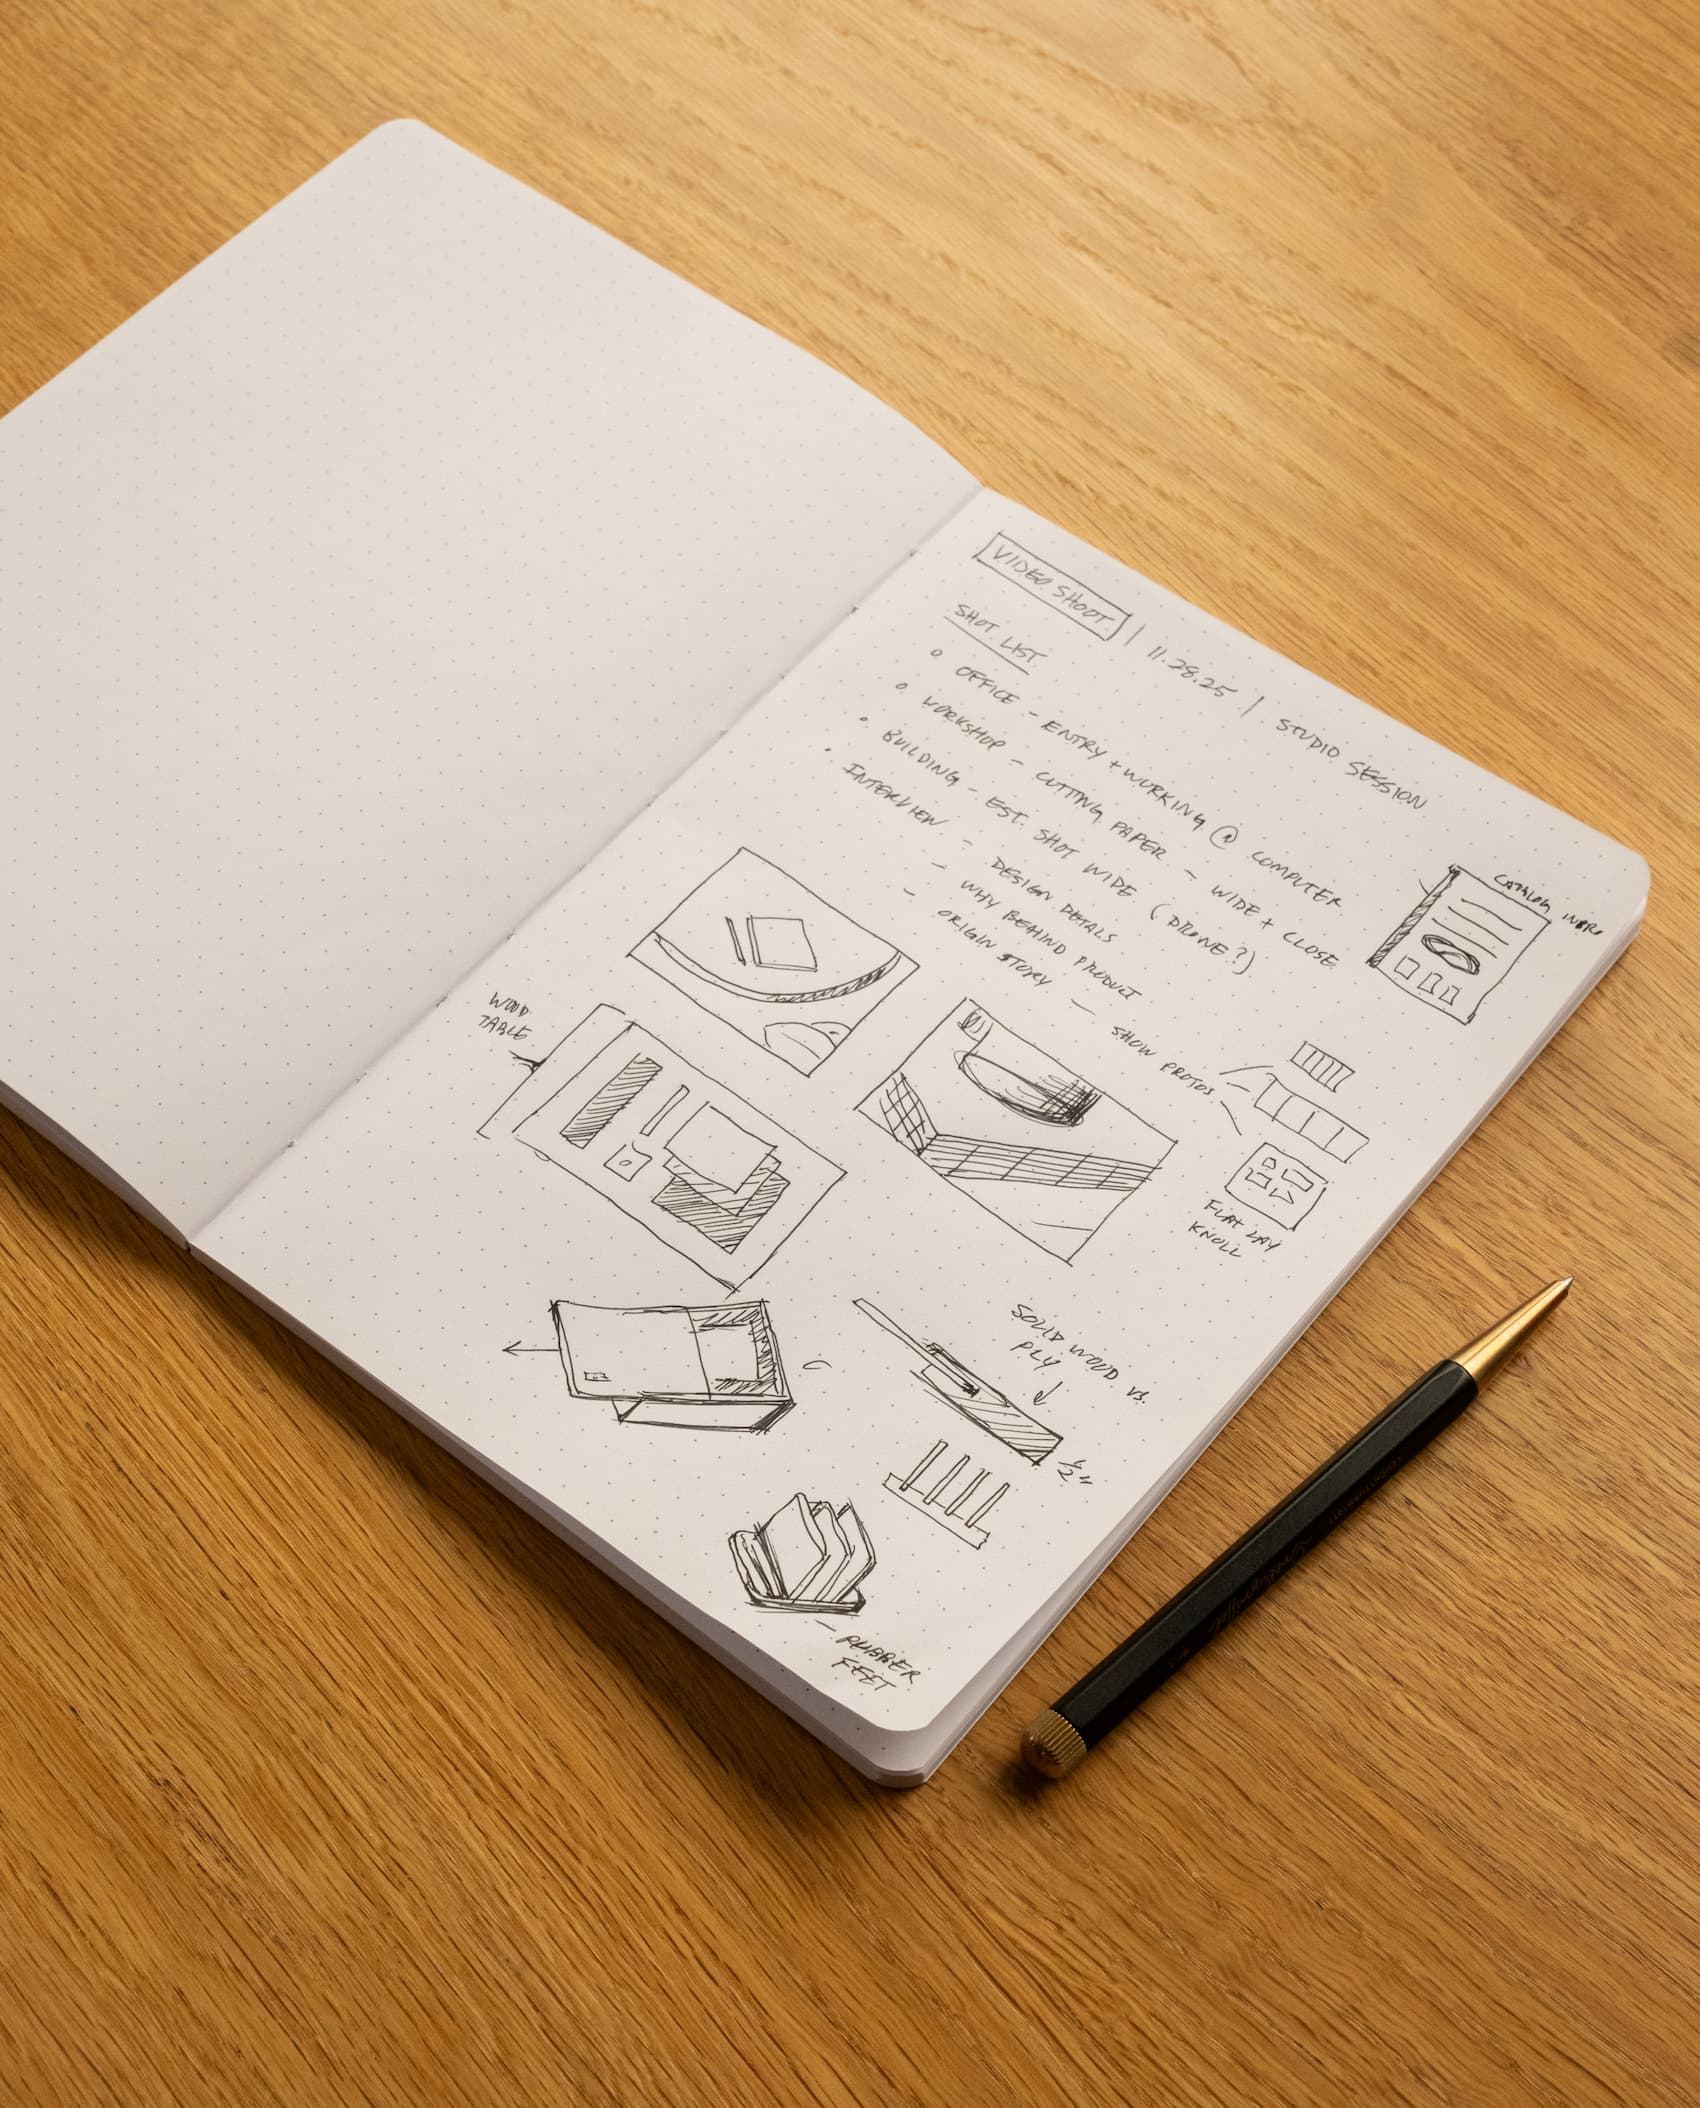 VIDEO SHOOT | 11.28.25 | STUDIO SESSION
SHOT LIST
OFFICE - ENTRY + WORKING @ COMPUTER
WORKSHOP - CUTTING PAPER - WIDE + CLOSE
BUILDING - EST. SHOT WIDE (DRONE?)
INTERVIEW - DESIGN DETAILS
- WHY BEHIND PRODUCT
- ORIGIN STORY - SHOW PROTOS
CATALOG
WOOD
TABLE
FLAT LAY
KNOLL
SOLID WOOD VS.
PLY
1/2"
- RUBBER
FEET